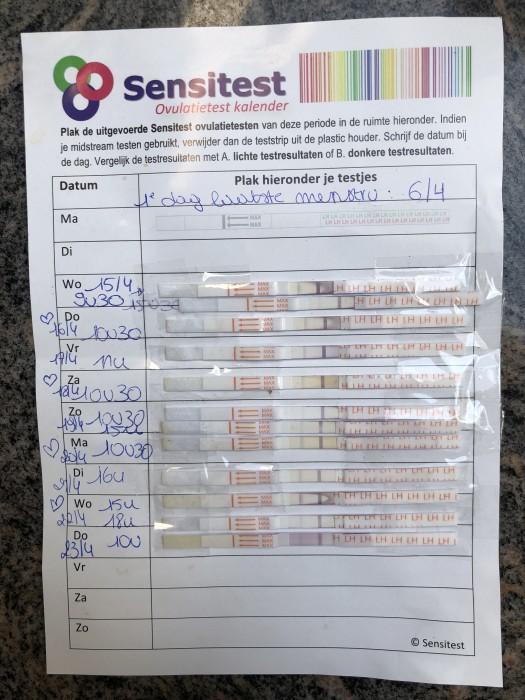 Sensitest
Ovulatietest kalender
Plak de uitgevoerde Sensitest ovulatietesten van deze periode in de ruimte hieronder. Indien
je midstream testen gebruikt, verwijder dan de teststrip uit de plastic houder. Schrijf de datum bij
de dag. Vergelijk de testresultaten met A. lichte testresultaten of B. donkere testresultaten.
Datum
Plak hieronder je testjes
1e dag laatste menstru: 6/4
Ma
MAX
LH LH LH LH LH LH LH LH LH LH
Di
Wo 15/4
9u30
MAX
LH LH LH LH LH LH
MAX
LH LH LH LH LH LH LH
Do
16/4 10u30
MAX
LH LH LH LH LH LH LH
Vr
17/4 11u
MAX
LH LH LH LH LH LH LH
Za
18/4 10u30
MAX
LH LH LH LH LH LH
Zo 10u30
19/4
MAX
LH LH LH LH LH LH
Ma 10u30
20/4
MAX
LH LH LH LH LH LH
Di 16u
21/4
MAX
LH LH LH LH LH LH
Wo 15u
22/4 18u
MAX
LH LH LH LH LH LH
MAX
LH LH LH LH LH LH LH
Do 10u
23/4
MAX
LH LH LH LH LH LH
Vr
Za
Zo
© Sensitest